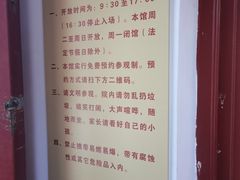 一、开放时间为:9:30至17:00
(16:30停止入场)。本馆
二至周日开放,周一闭馆(法
定节假日除外)。
二、本馆实行免费预约参观制。预
约方式请扫下方二维码。
三、请文明参观。院内请勿乱扔垃
圾、嬉笑打闹、大声喧哗,随
地而坐。家长请看好自己的小
孩。
四、禁止携带易燃易爆,带有腐蚀
性或其它危险品入内。